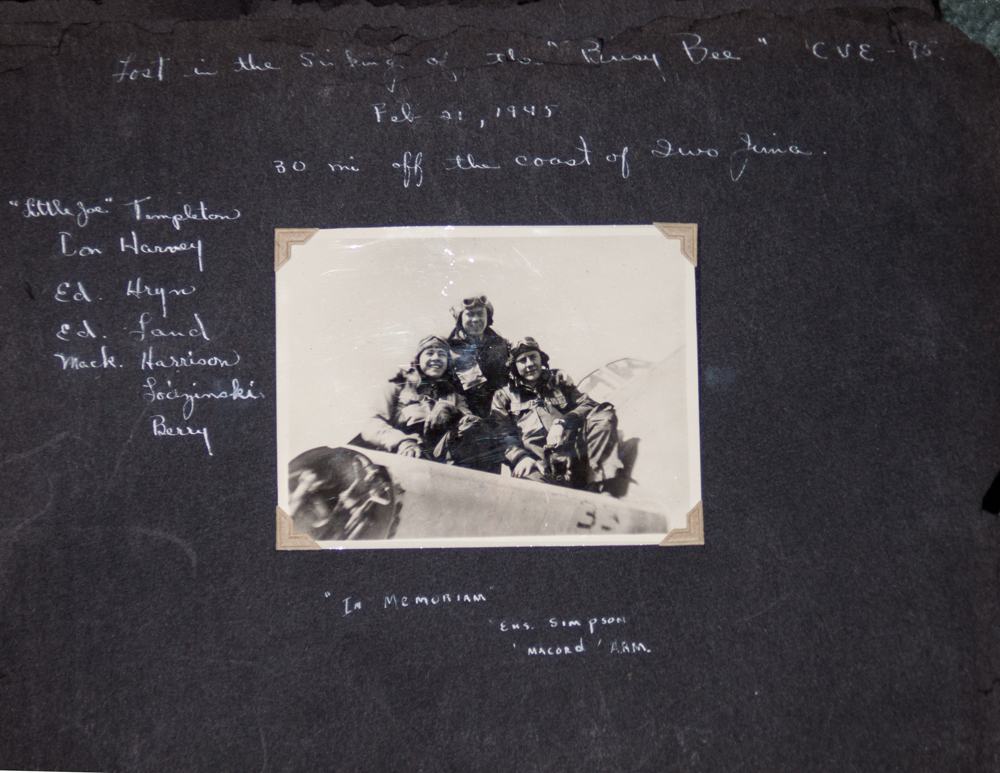 Lost in the Sinking of the "Busy Bee" CVE-95.
Feb 21, 1945
30 mi off the coast of Iwo Jima.
"Little Joe" Templeton
Harvey
Ed. Hryn
Ed. Land
Mack. Harrison
Berry
33
"In Memoriam"
Ens. Simpson
'Macord' ARM.